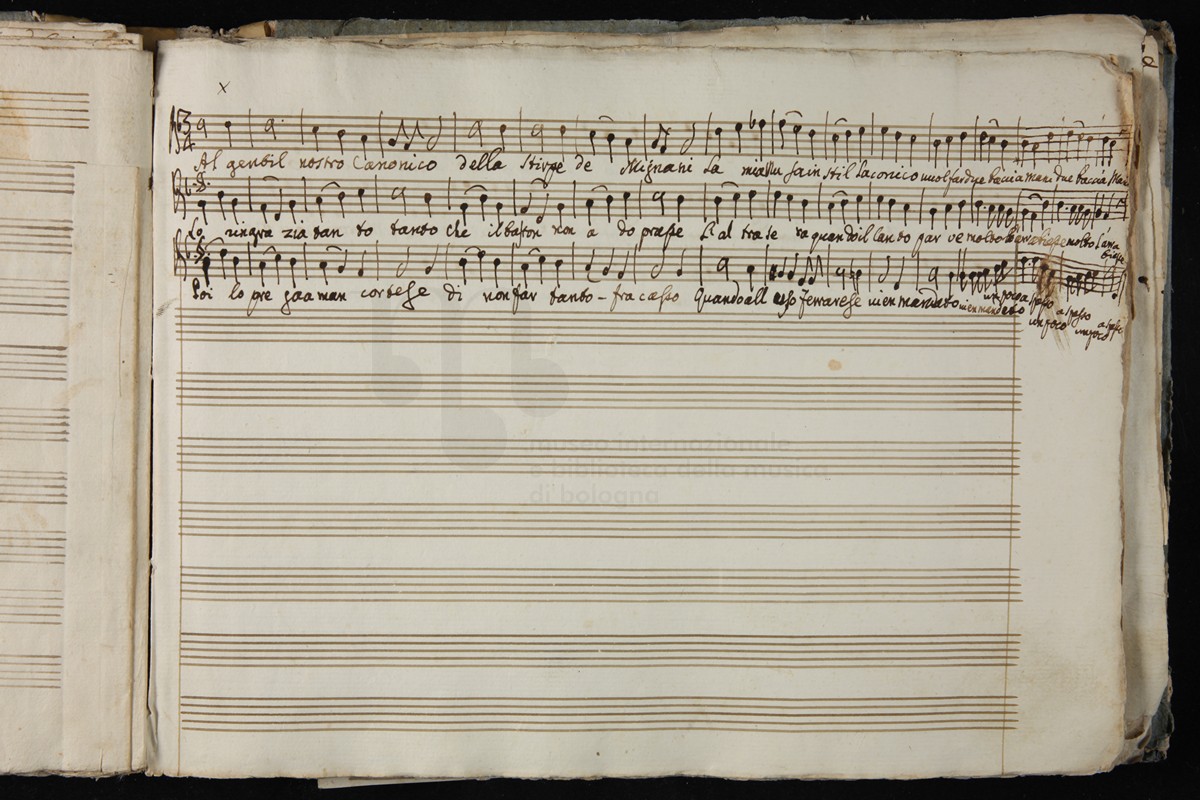 x
Al gentil nostro Canonico della Stirpe de Mignani La mia in Stil Laconico vuol far due baccia mani due baccia
Lo ringra zia tan to tanto che il baston non a do prasse L'al tra se ra quando il can to par ve molto molto
Poi lo pre ga a man cortese di non far tanto fracasso Quando all uso ferrarese vien mandato vien mandato un poco a spasso
un poco a spasso
un poco a spasso
museo internazionale
e biblioteca della musica
di bologna